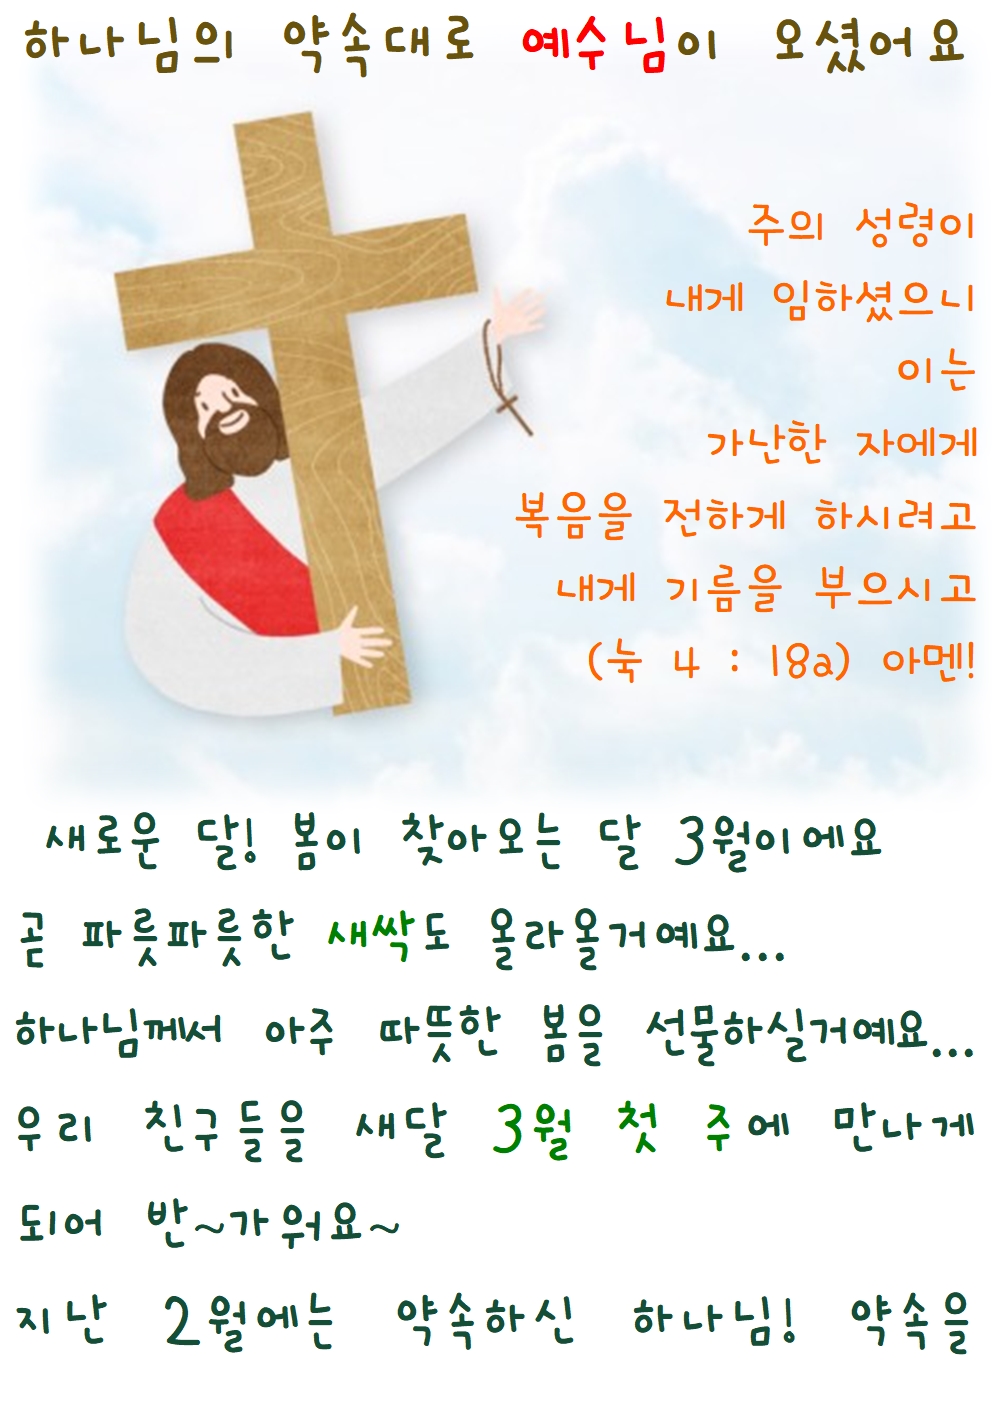 하나님의 약속대로 예수님이 오셨어요
주의 성령이
내게 임하셨으니
이는
가난한 자에게
복음을 전하게 하시려고
내게 기름을 부으시고
(눅 4 : 18a) 아멘!
새로운 달! 봄이 찾아오는 달 3월이에요
곧 파릇파릇한 새싹도 올라올거예요...
하나님께서 아주 따뜻한 봄을 선물하실거예요...
우리 친구들을 새달 3월 첫 주에 만나게
되어 반~가워요~
지난 2월에는 약속하신 하나님! 약속을